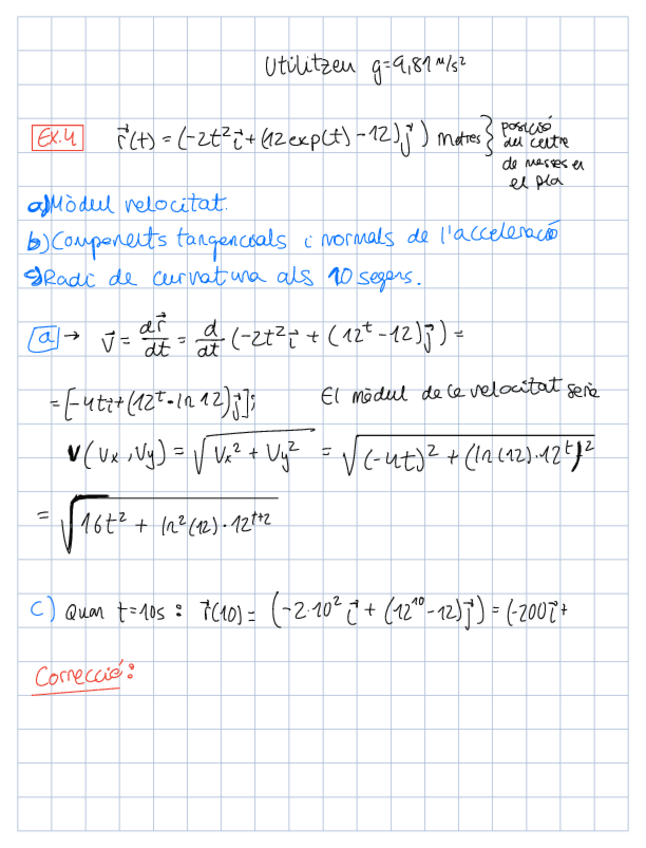 Utilitzeu g=9,81 m/s²
Ex.4 r⃗(t) = (-2t² i⃗ + (12 exp(t) - 12) j⃗ ) metres } posició del centre de masses en el pla
a) Mòdul velocitat.
b) Components tangencials i normals de l'acceleració
c) Radi de curvatura als 10 segons.
a → v⃗ = dr⃗/dt = d/dt (-2t² i⃗ + (12^t - 12) j⃗ ) =
= [-4t i⃗ + (12^t · ln 12) j⃗ ]; El mòdul de la velocitat seria
v(vx, vy) = √(vx² + vy²) = √((-4t)² + (ln(12) · 12^t)²)
= √(16t² + ln²(12) · 12^(t+2))
c) Quan t=10s : r⃗(10) = (-2·10² i⃗ + (12^10 - 12) j⃗ ) = (-200 i⃗ +
Correcció: